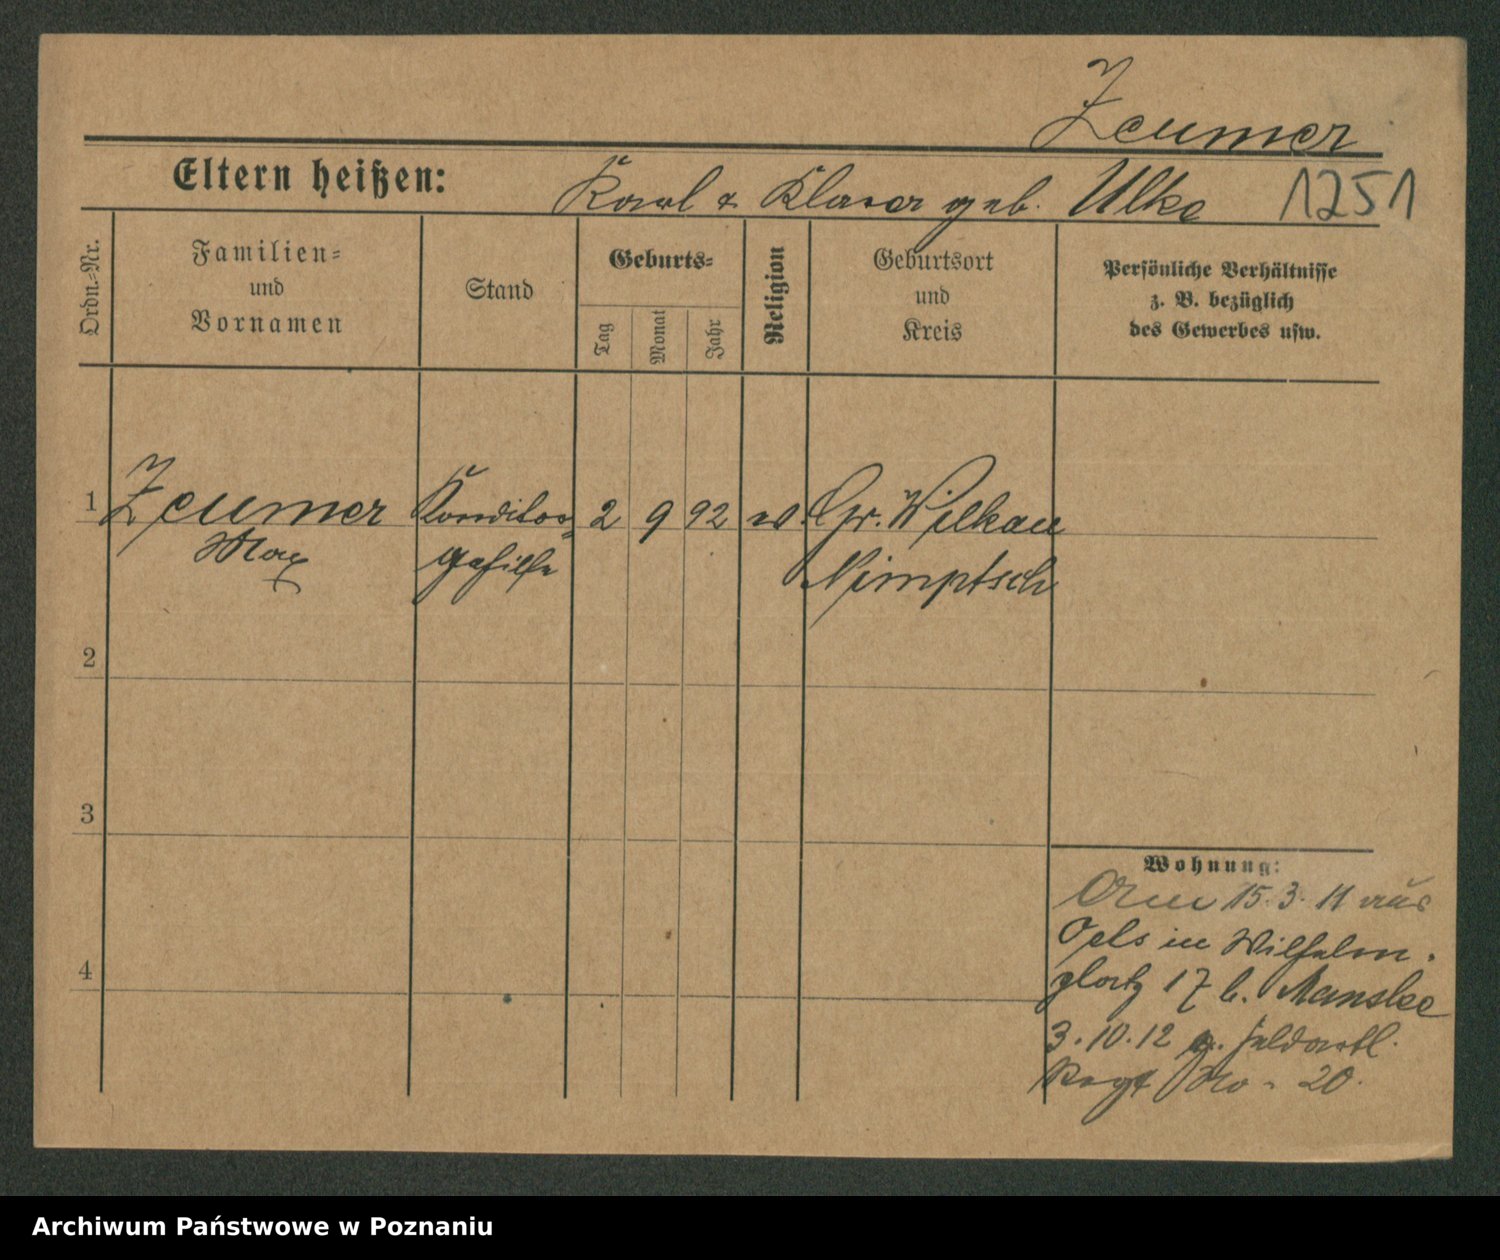 Zeumer
Eltern heißen: Karl & Klara geb. Ulke 1251
Ordn.-Nr.
Familien-
und
Vornamen
Stand
Geburts-
Tag
Monat
Jahr
Religion
Geburtsort
und
Kreis
Persönliche Verhältnisse
z. B. bezüglich
des Gewerbes usw.
1 Zeumer Konditor- 2 9 92 ev. Gr. Wilkau
Max gehilfe Nimptsch
2
3
4
Wohnung:
15.3.11 aus
Oels in Wilhelm-
platz 17 b. Manske
3.10.12 z. Feldartl.
Regt No. 20.
Archiwum Państwowe w Poznaniu